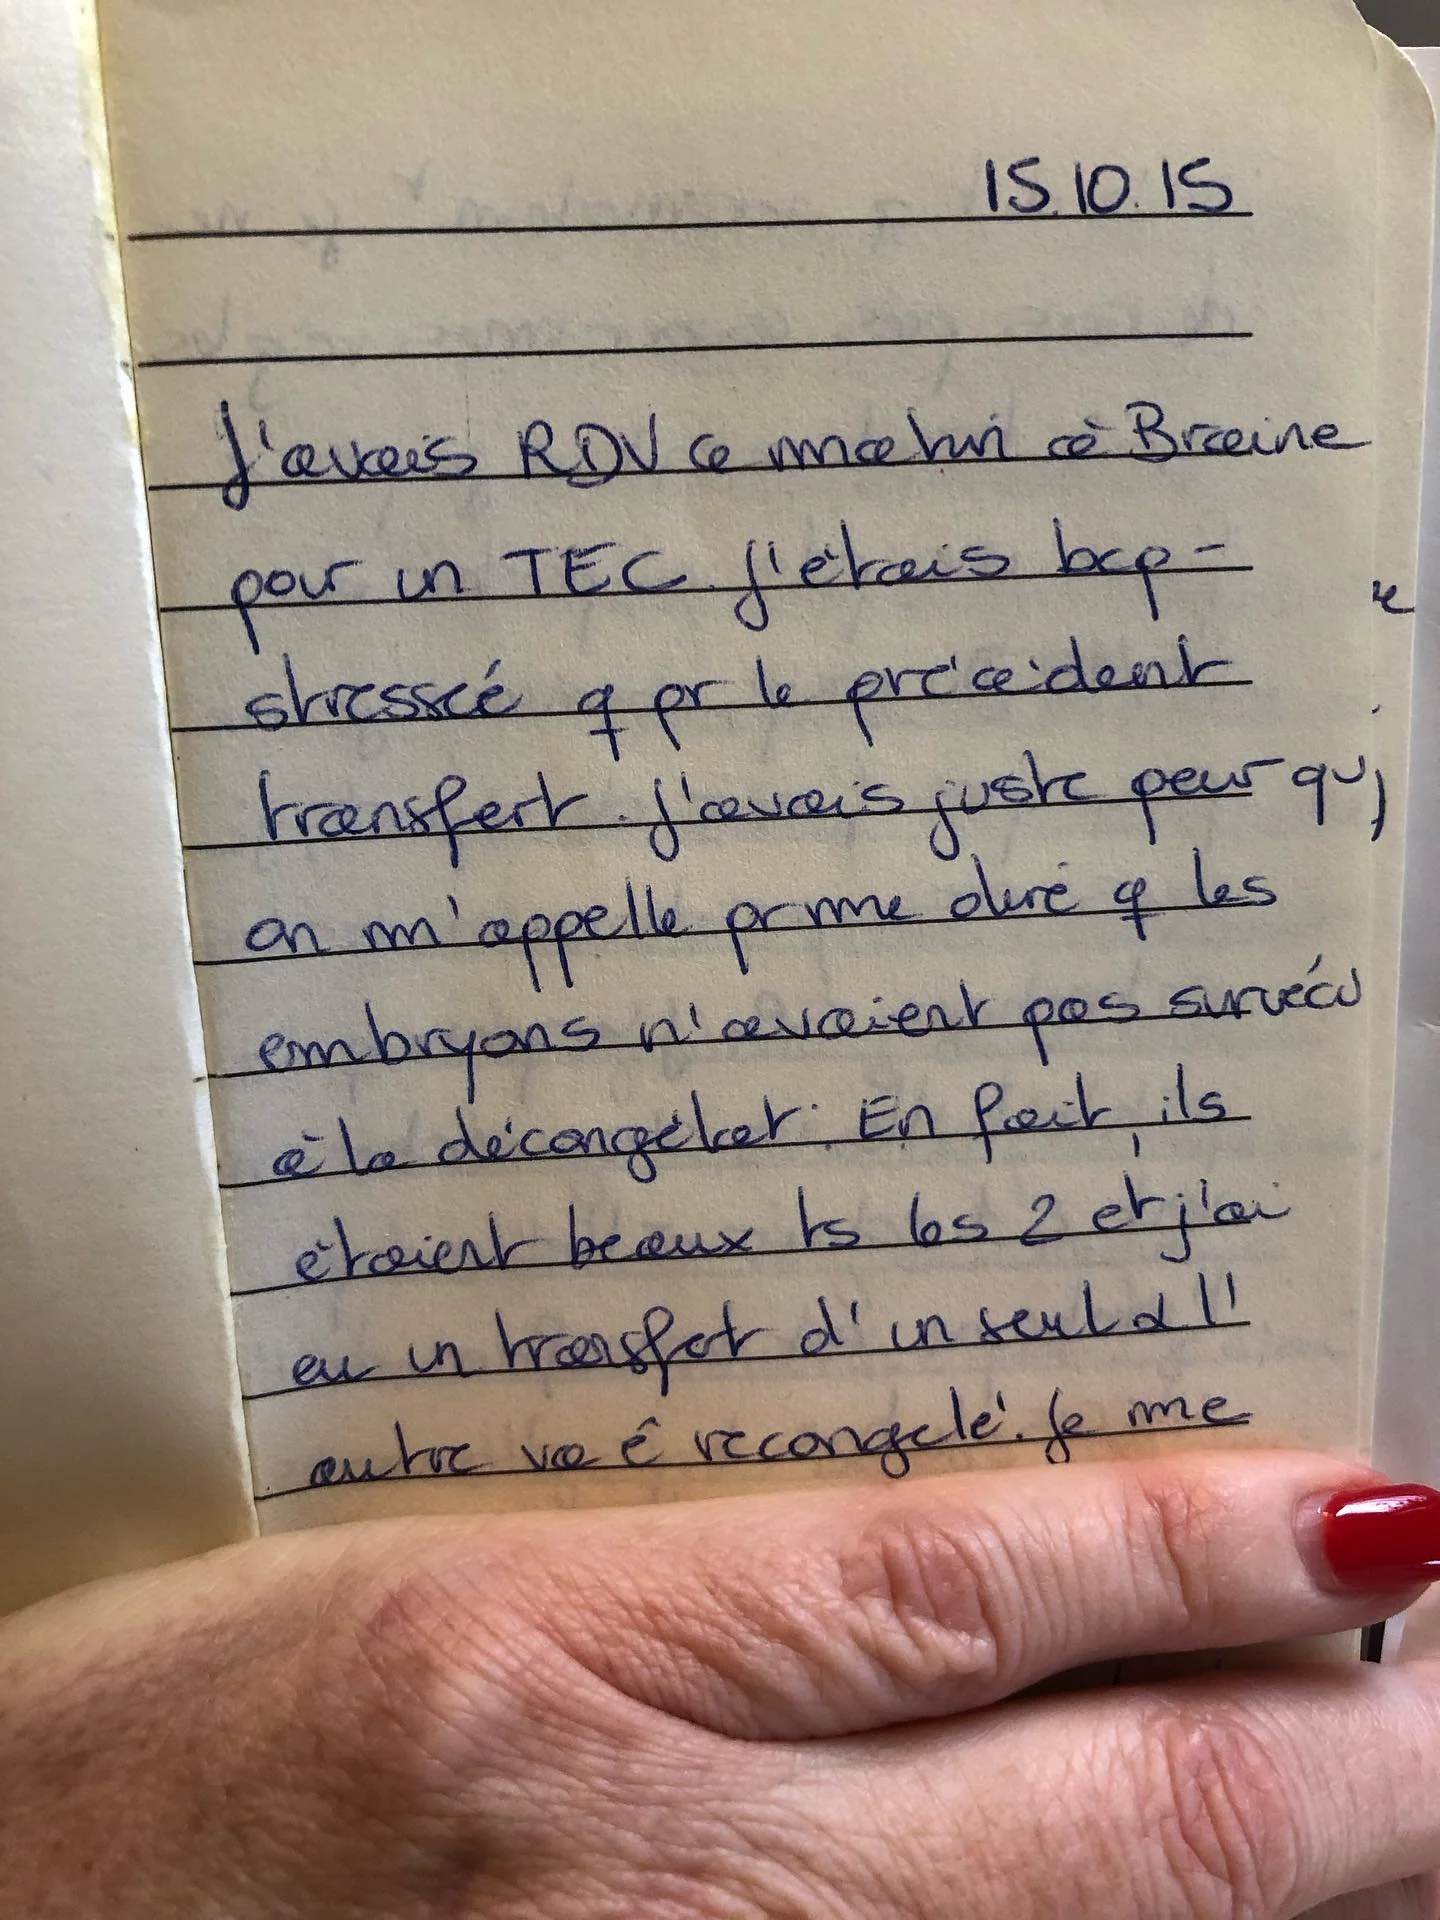 15.10.15
J'avais RDV ce matin à Braine
pour un TEC. J'étais bcp -
stressée q pr le précédent
transfert. J'avais juste peur qu'
on m'appelle pr me dire q les
embryons n'avaient pas survécu
à la décongélat°. En fait, ils
étaient beaux ts les 2 et j'ai
eu un transfert d'un seul & l'
autre va ê recongelé. Je me